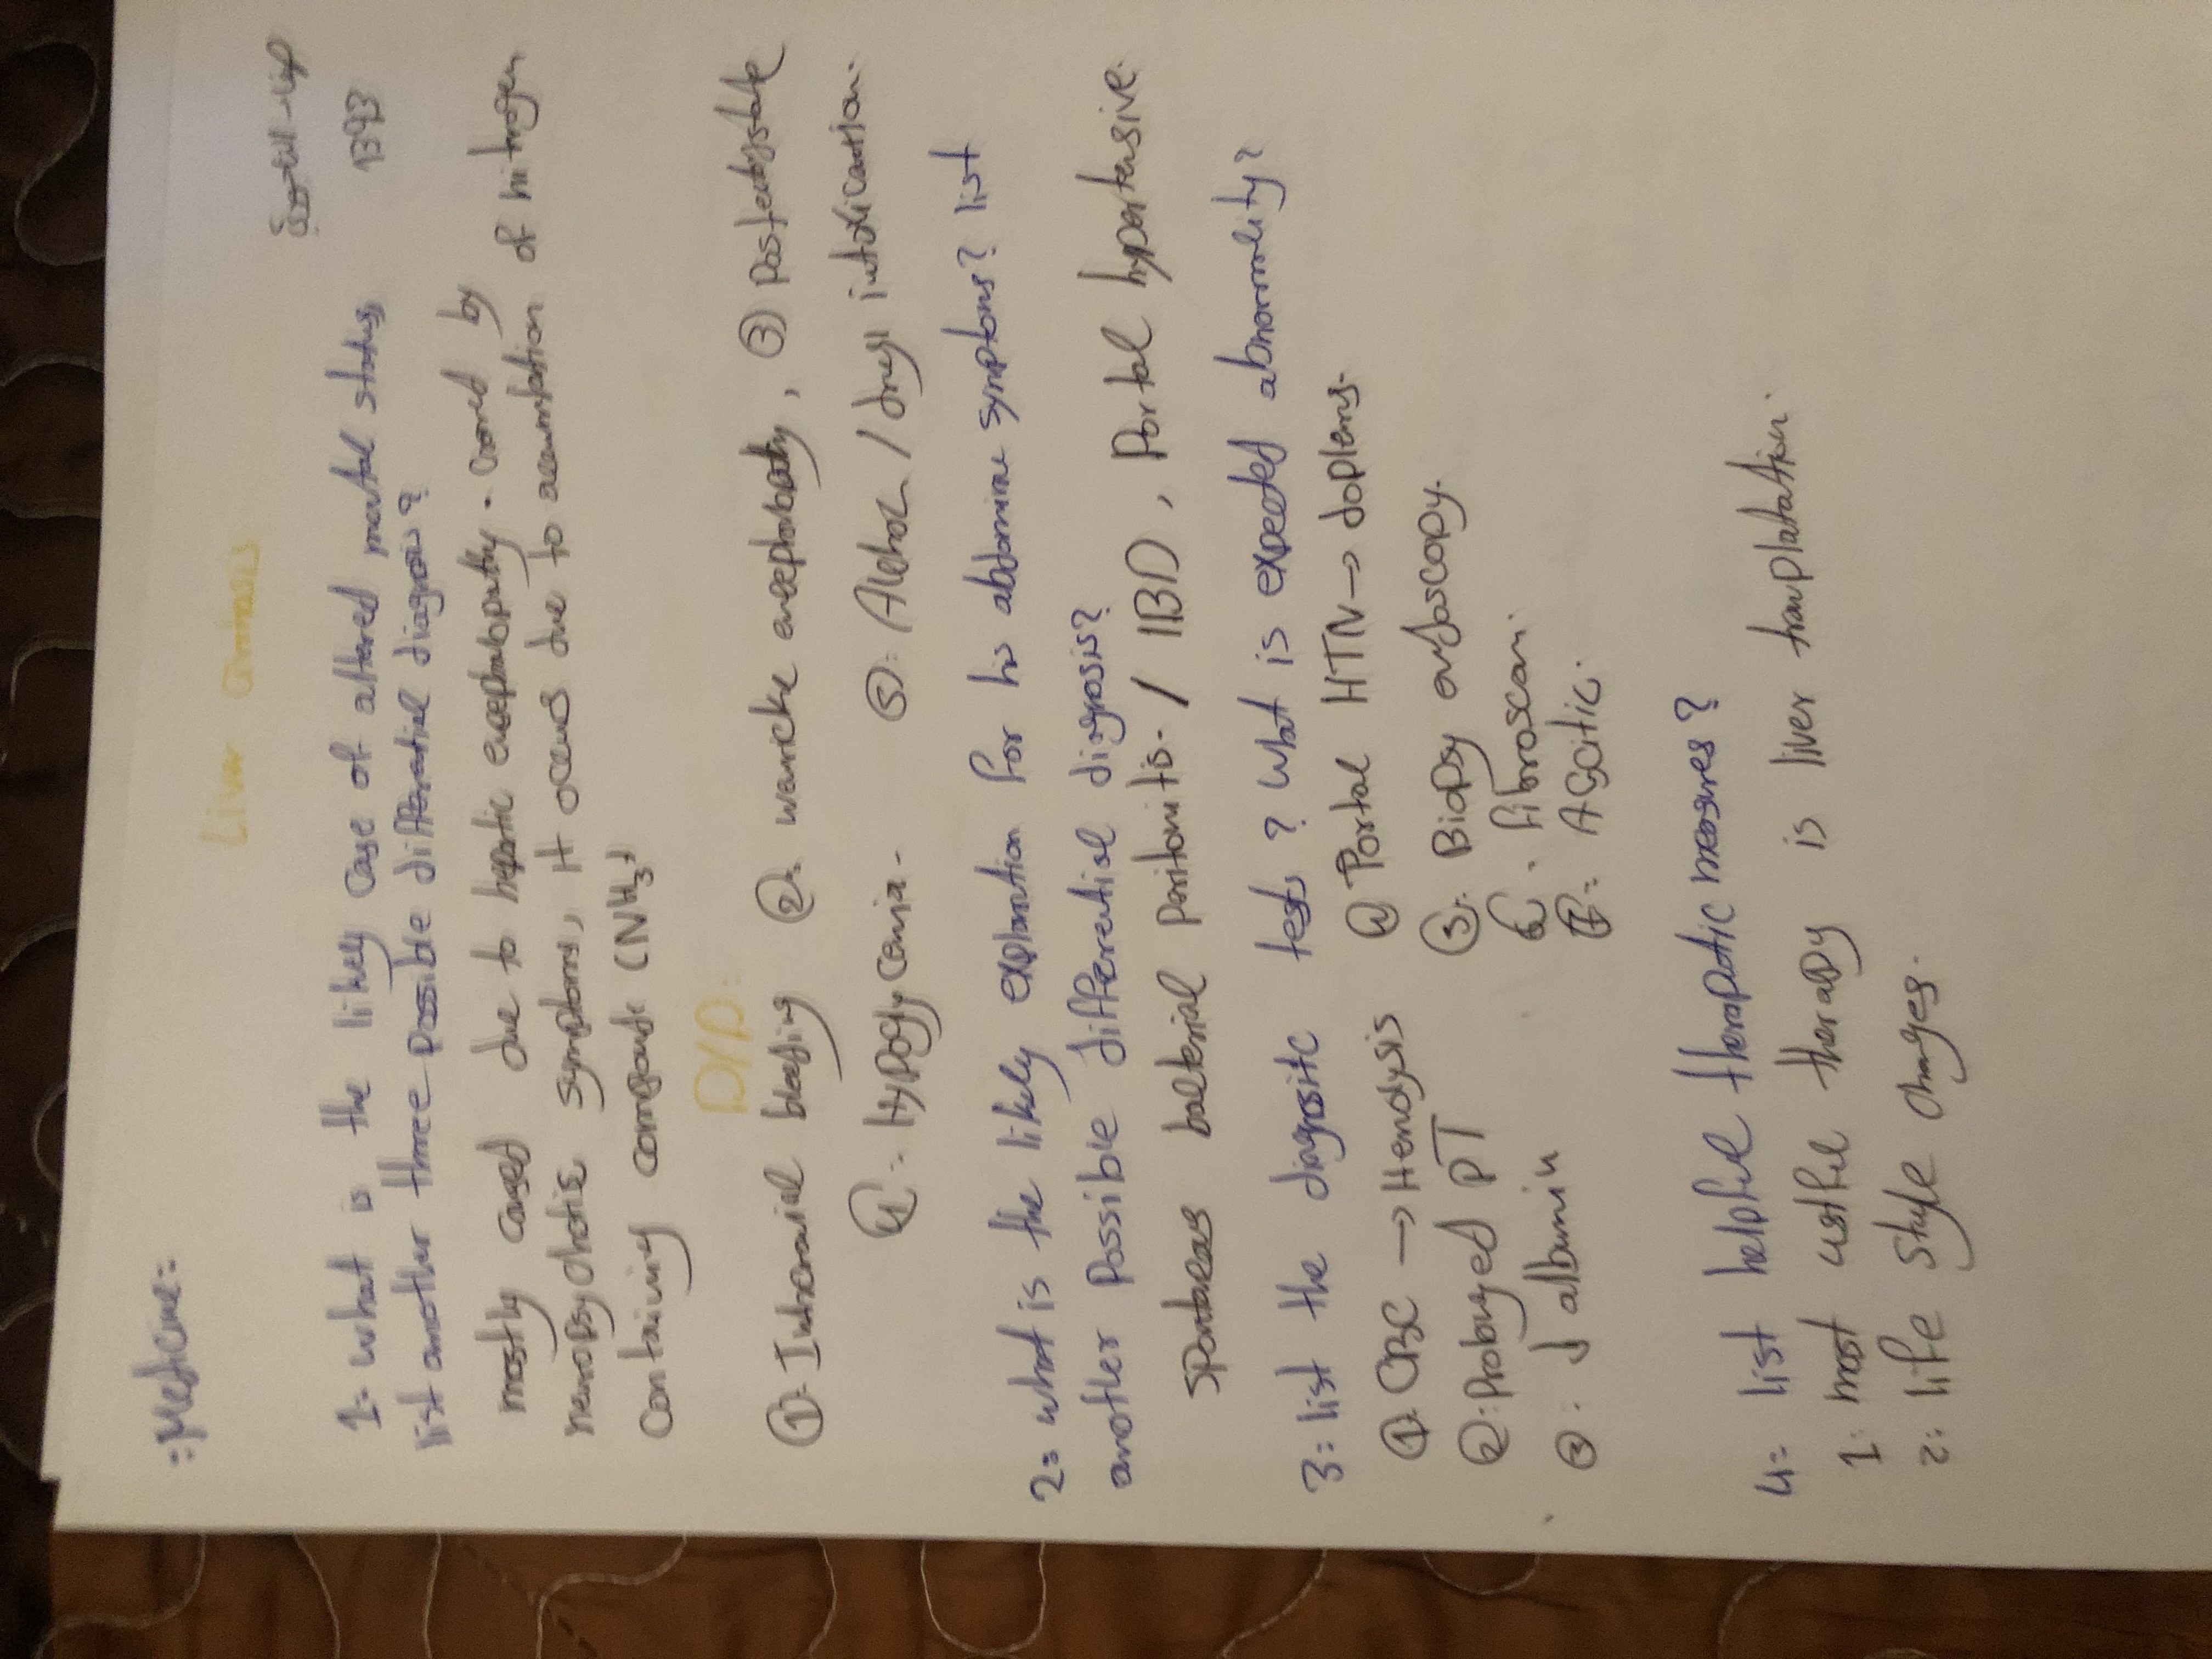 :Medicine:
Liver
1393
1= what is the likey case of altered mental status,
list another three possible differential diagnosis?
mostly caused due to hepatic encephalopathy. by
neuropsychotic symptoms, it occurs due to accumlation of nitrogen
containing compounds (NH3)
D/D:
①. Intracranial bleeding ②. wernicke encephalopathy, ③ Postedystate
④.: Hypoglycemia. ⑤: Alchol / drug intoxication.
2= what is the likely explanation for his abdomine symptoms? list
another Possible differential dignosis?
spontaneas bacterial peritonitis. / IBD, Portal hypertensive.
3= list the diagnositc tests? what is expected abnormality?
①. CBC → Hemolysis ④ Portal HTN → doplers.
②: Prolonged PT ⑤: Biopsy endoscopy.
③: ↓ albumin ⑥. fibroscan.
⑦: Ascitic.
4= list helpful theraputic measures?
1: most usfful therapy is liver tranplatation.
2: life style changes.